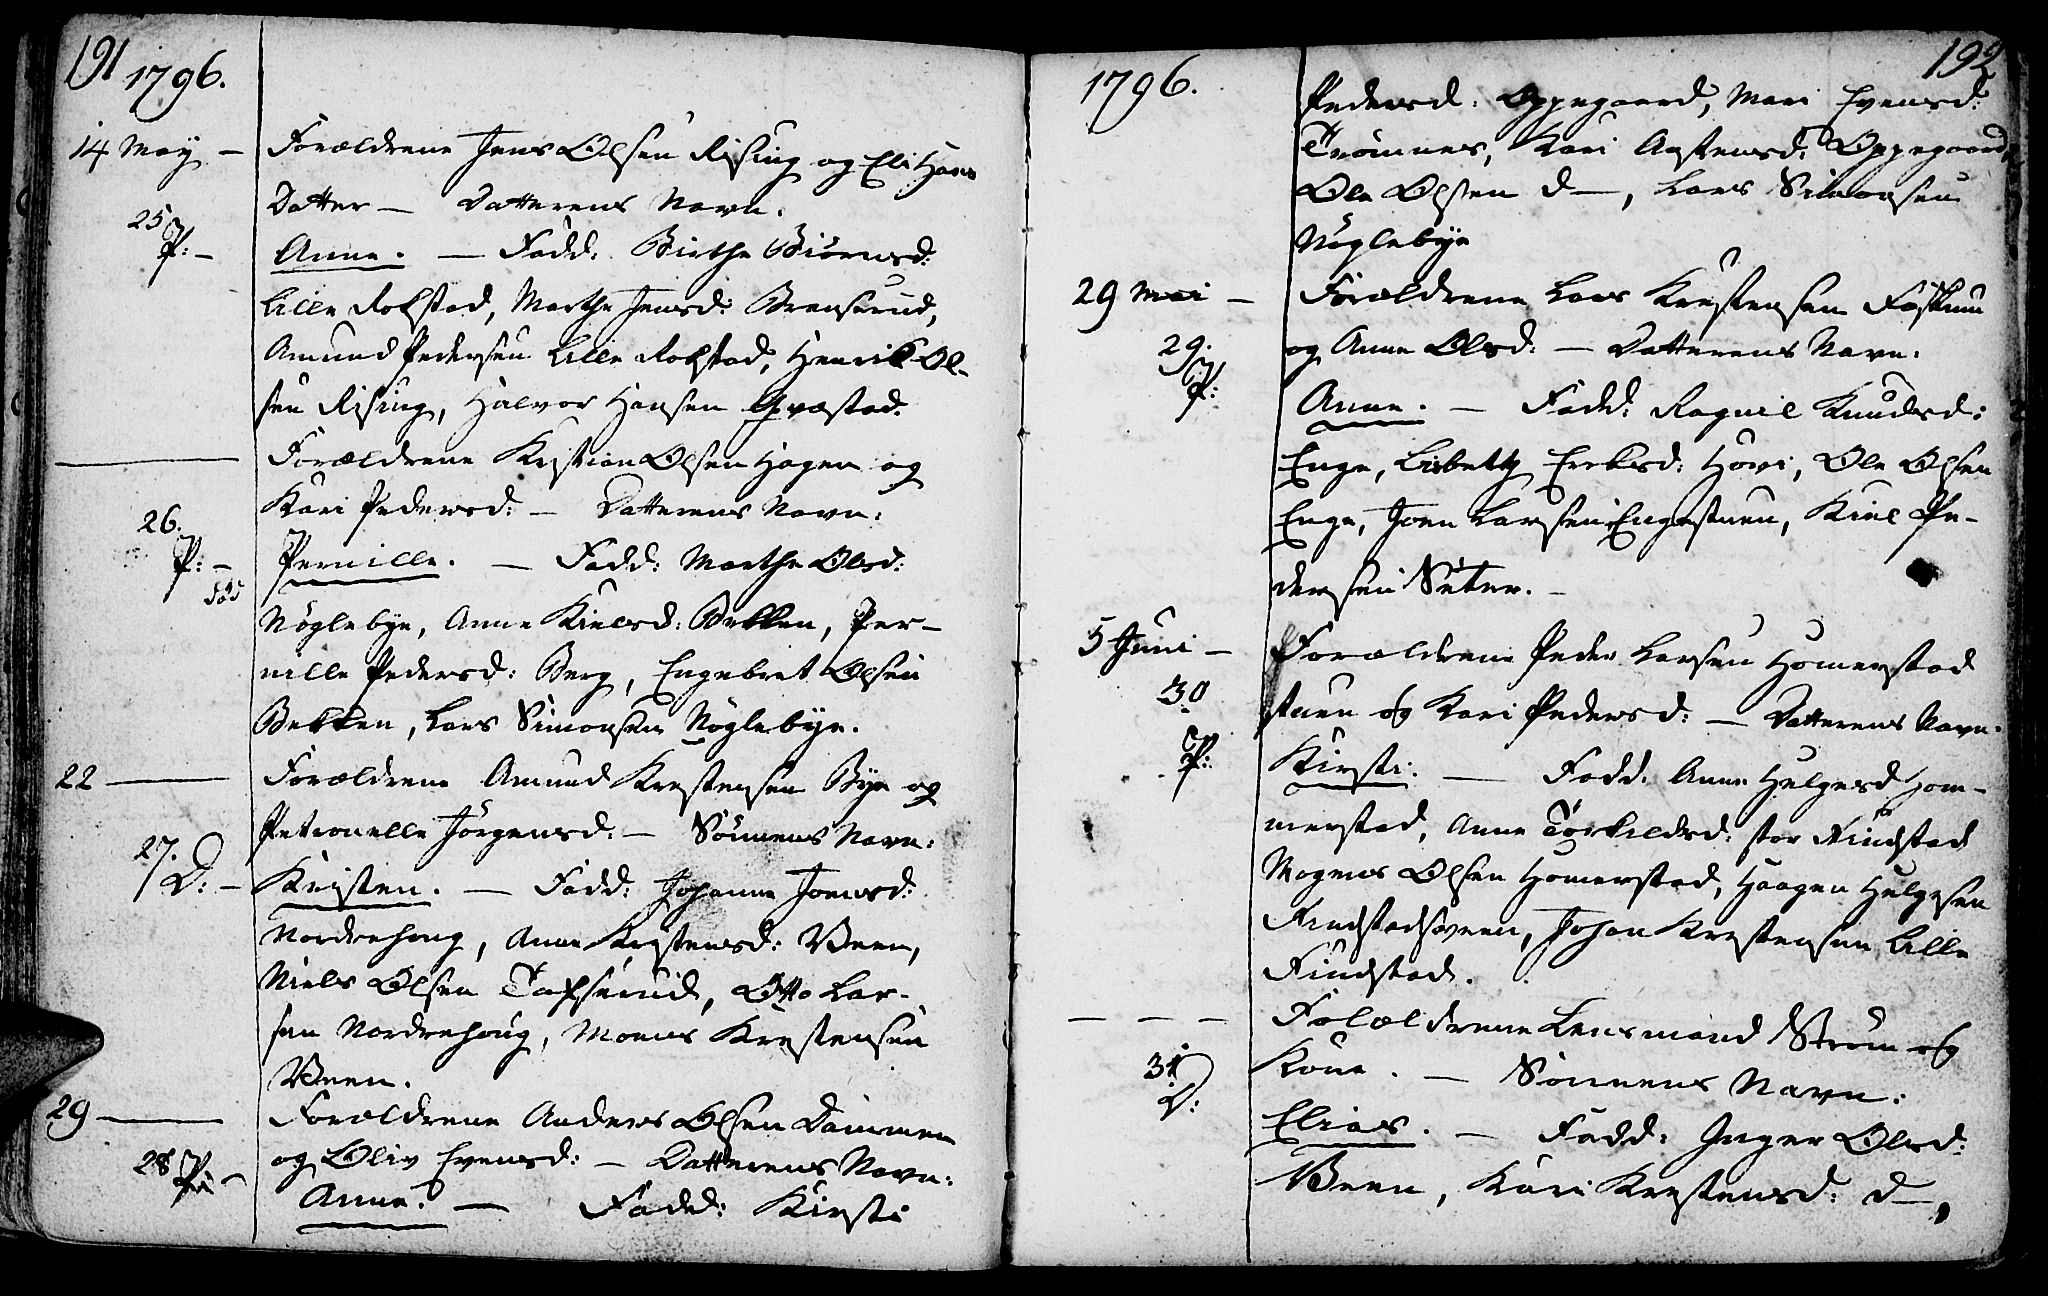 191 1796.
14 May — Forældrene Jens Olsen Rising og Eli Hans
Datter — Datterens Navn:
25 P: — Anne. — Fadd: Birthe Biörnsd:
Lille Rolstad, Marthe Jensd: Bransrud,
Amund Pedersen Lille Rolstad, Henrik Ol-
sen Rising, Halvor Hansen Qvæstad.
— Forældrene Kristian Olsen Hagen og
Kari Pedersd: — Datterens Navn:
26. P: — Pernille. — Fadd: Marthe Olsd:
Nöglebye, Anne Kielsd: Bekken, Per-
nille Pedersd: Berg, Engebret Olsen
Bekken, Lars Simonsen Nöglebye.
22 — Forældrene Amund Krestensen Bye og
Petronelle Jörgensd: — Sönnens Navn:
27. D: — Kristen. — Fadd: Johanne Joensd:
Nordrehoug, Anne Krestensd: Veen,
Niels Olsen Taxserud, Otto Lar-
sen Nordrehoug, Moens Krestensen
Veen.
29 — Forældrene Anders Olsen Dammen
og Oliv Evensd: — Datterens Navn:
28 P: — Anne. — Fadd: Kirsti
1796. 192
Pedersd: Oppegaard, Mari Evensd:
Trömnes, Kari Axstensd: Oppegaard,
Ole Olsen d—, Lars Simonsen
Nöglebye
29 Mai — Forældrene Lars Krestensen Foskum
og Anne Olsd: — Datterens Navn:
29. P: Anne. — Fadd: Ragnil Knudsd:
Enge, Lisbeth Ereksd: Hovi, Ole Olsen
Enge, Joen Larsen Engestuen, Kiel Pe-
dersen Seter. —
5 Juni — Forældrene Peder Larsen Homerstad
stuen og Kari Pedersd: — Datterens Navn:
30 P: Kirsti. — Fadd: Anne Helgesd Hom-
merstad, Anne Torkildsd: stor Findstad
Mogens Olsen Homerstad, Haagen Helgesen
Findstadsveen, Johan Krestensen Lille
Findstad.
— — — Forældrene Lensmand Ström og
Kone. — Sönnens Navn:
31 D: Elias. — Fadd: Inger Olsd:
Veen, Kari Krestensd: d—,